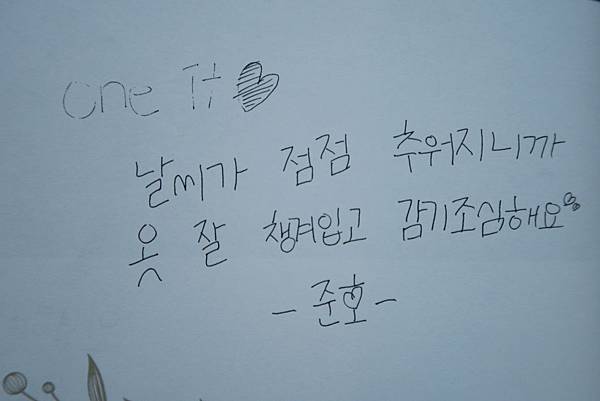 one It
날씨가 점점 추워지니까
옷 잘 챙겨입고 감기조심해요
- 준호 -